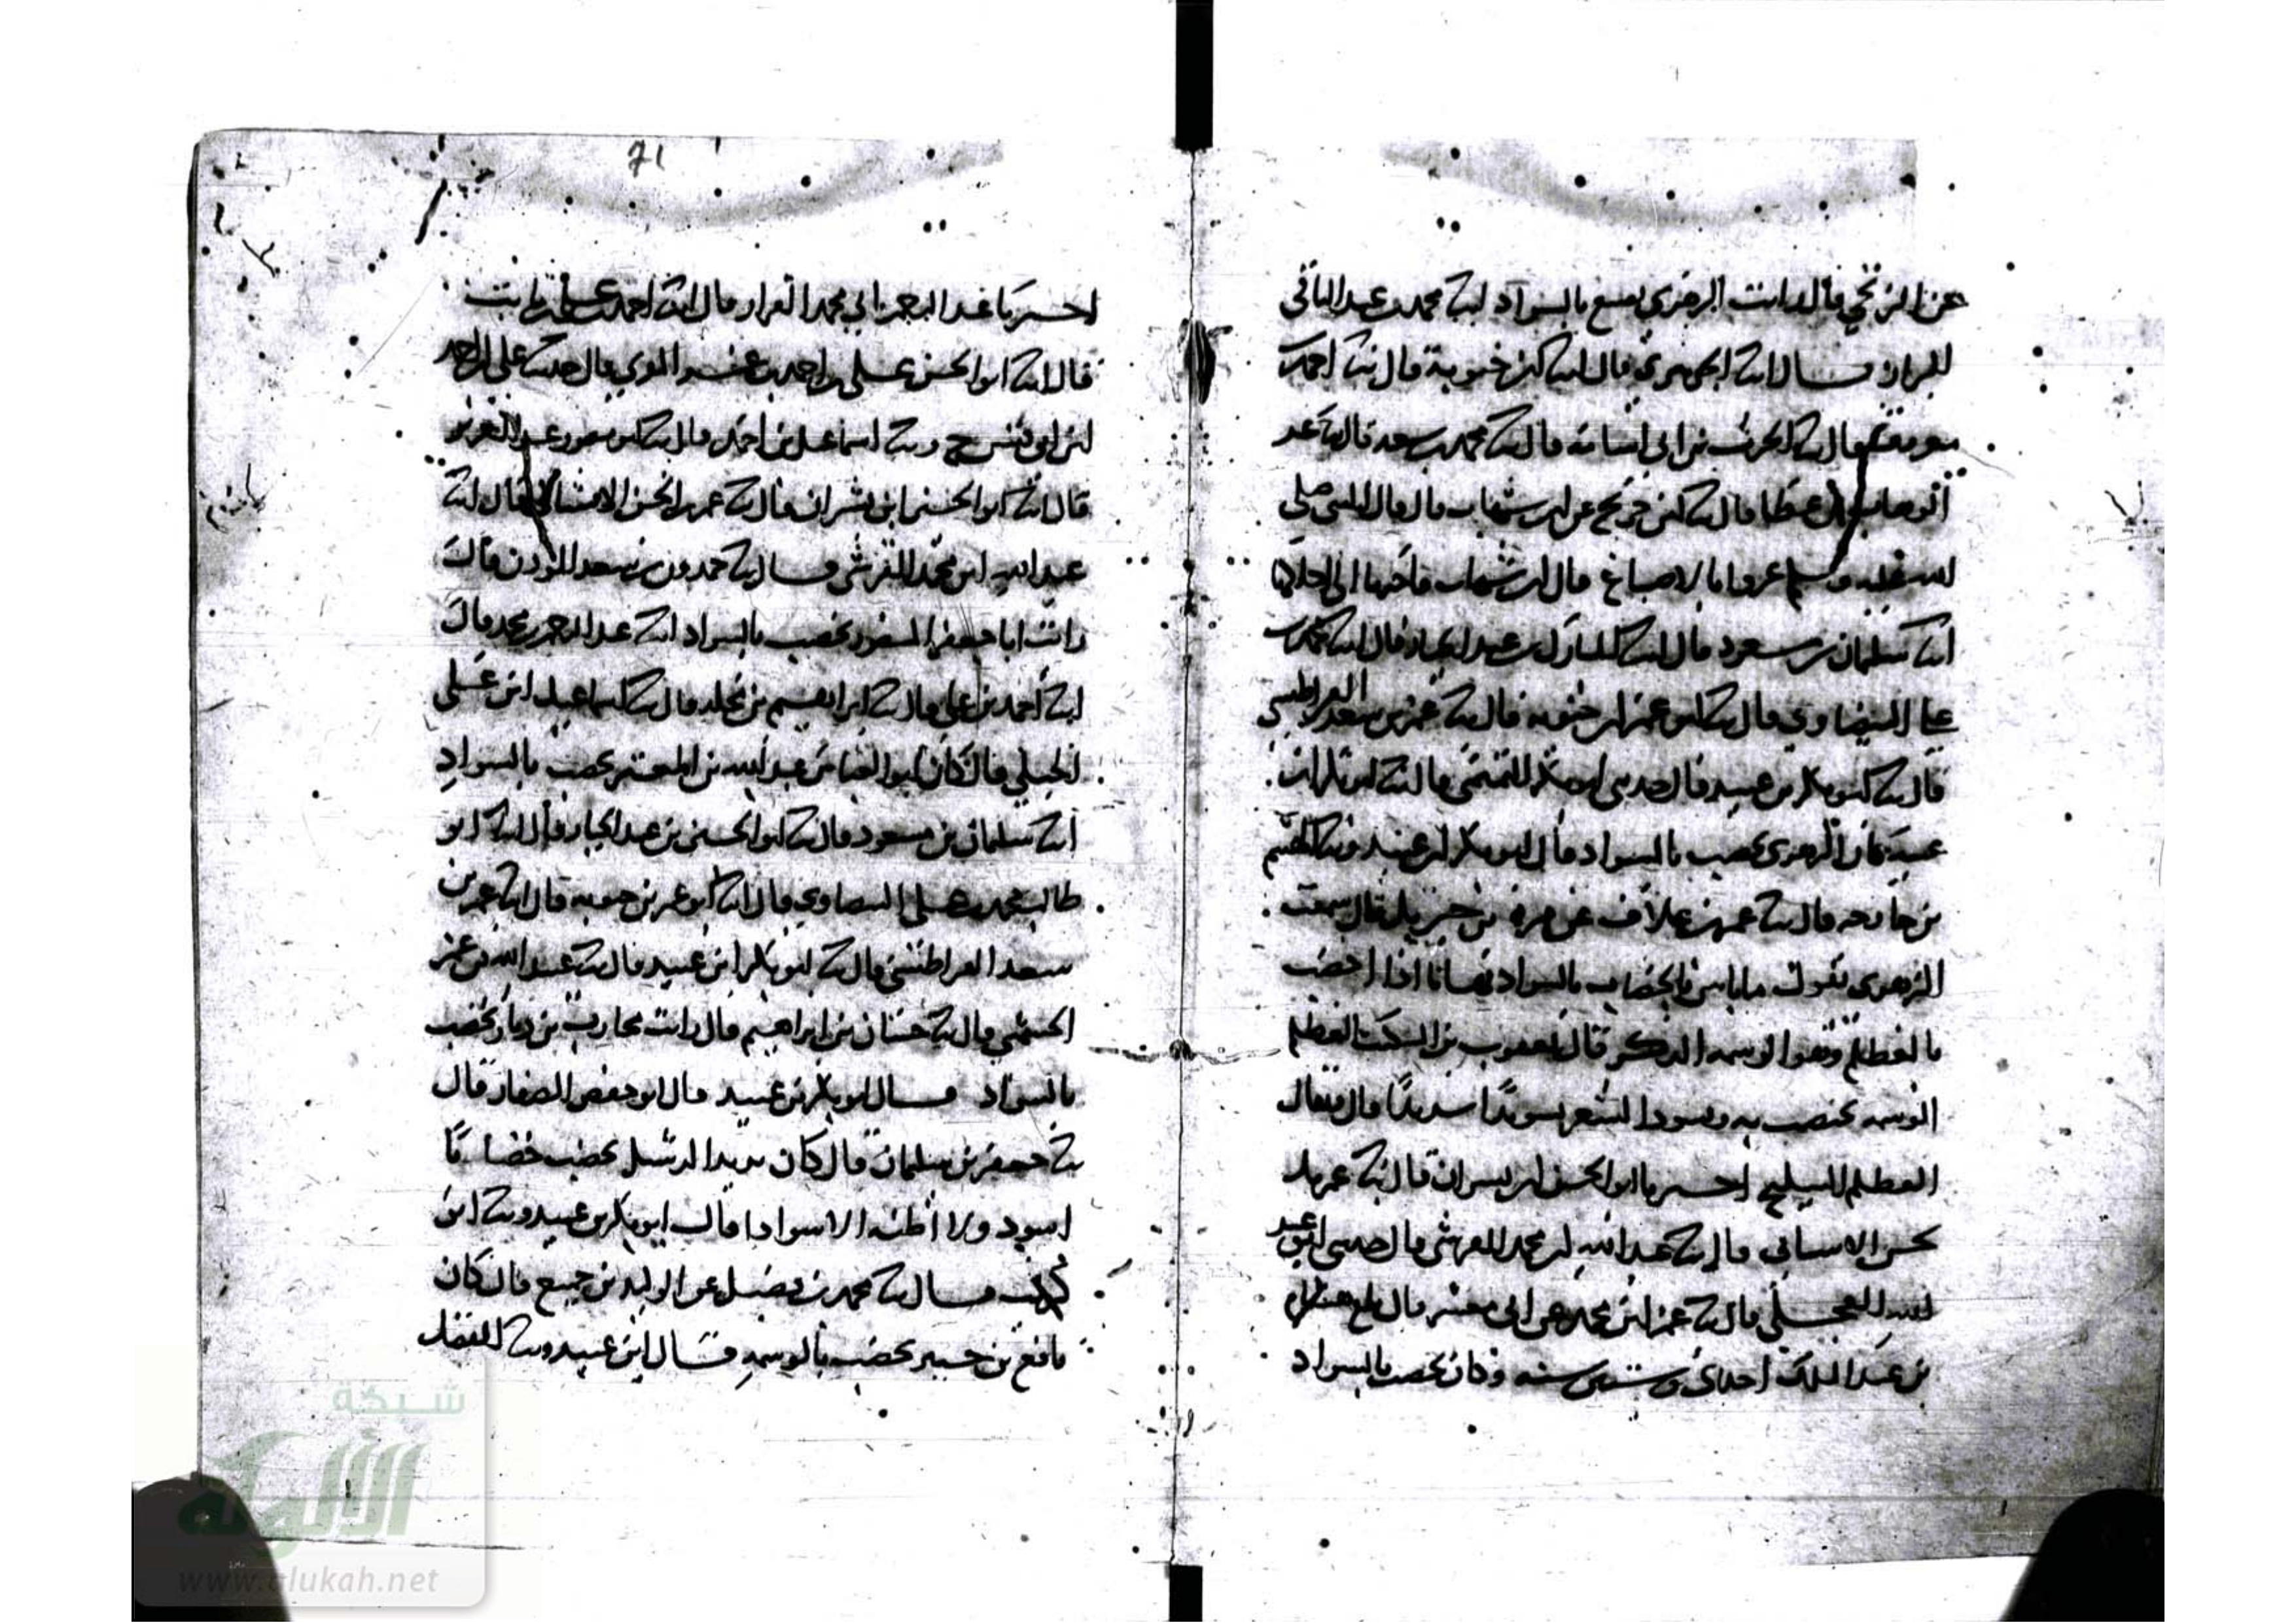 عن الزنجي قال رايت الزهري يصبغ بالسواد ابنا محمد بن عبد الباقي
البزاز قال ابنا الجوهري قال ابنا ابن حيوية قال ثنا احمد بن
معروف قال ثنا الحرث بن ابي اسامة قال ثنا محمد بن سعد قال ثنا عبد
الوهاب بن عطا قال ثنا ابن جريج عن ابن شهاب قال قال النبي صلى
الله عليه وسلم غيروا بالاصباغ قال ابن شهاب واحبها الي احلكها
ابنا سلمان بن مسعود قال ابنا المبارك بن عبد الجبار قال ابنا محمد بن
علي البيضاوي قال ثنا ابو عمر ابن حيويه قال ثنا عمر بن سعد القراطيسي
قال ثنا ابو بكر بن عبيد قال حدثني ابو بكر التميمي قال ثنا ابن
كان الزهري يخضب بالسواد قال ابو بكر ابن عبيد وثنا الهيثم
بن خارجه قال ثنا عمر بن علاف عن مرة بن جبريل قال سمعت
الزهري يقول ما باس بالخضاب بالسواد
بالعظلم وهو الوسمه الذكر قال يعقوب بن السكيت العظلم
الوسمه يختضب به ويسود الشعر تسويدًا شديدًا قال
العظلم اخبرنا ابو الحسن ابن بشران قال ثنا عمر بن
الحسن الاشناني قال ثنا عبد الله ابن محمد القرشي قال حدثني ابو عبد
الله العجلي قال ثنا عمر ابن محمد عن ابي معشر قال بلغ هشام
بن عبد الملك احدى وستين سنه وكان يخضب بالسواد
71
اخبرنا عبد الرحمن ابن محمد القزاز قال ابنا احمد بن علي بن ثابت
قال ابنا ابو الحسن علي بن احمد بن عمر المقري قال حدثنا علي بن احمد
ابن ابي قيس ح وثنا اسماعيل بن احمد قال ثنا ابو منصور عبد العزيز
قال ابنا ابو الحسين ابن بشران قال ثنا عمر بن الحسن الاشناني قال ابنا
عبد الله ابن محمد القرشي قال ثنا حمدون بن سعد المؤذن قال
رايت ابا جعفر المنصور يخضب بالسواد ابنا عبد الرحمن بن محمد قال
ابنا احمد بن علي قال ثنا ابراهيم بن مخلد قال ثنا اسماعيل ابن علي
الخطبي قال كان ابو العباس عبد الله بن المعتز يخضب بالسواد
ابنا سلمان بن مسعود قال ثنا ابو الحسين بن عبد الجبار قال ابنا ابو
طالب محمد بن علي البيضاوي قال ابنا ابو عمر بن حيويه قال ابنا عمر بن
سعد القراطيسي قال ثنا ابو بكر ابن عبيد قال ثنا عبد الله بن عمر
الجشمي قال ثنا حسان بن ابراهيم قال رايت محارب بن دثار يخضب
بالسواد قال ابو بكر بن عبيد قال ابو جعفر الصفار قال
ثنا جعفر بن سليمان قال كان يزيد الرشك يخضب خضابًا
اسود ولا اظنه الا سوادا قال ابو بكر بن عبيد وثنا ابن
قال ثنا محمد بن فضيل عن الوليد بن جميع قال كان
نافع بن جبير يخضب بالوسمه قال ابن عبيد وثنا المفضل
شبكة
الألوكة
www.alukah.net